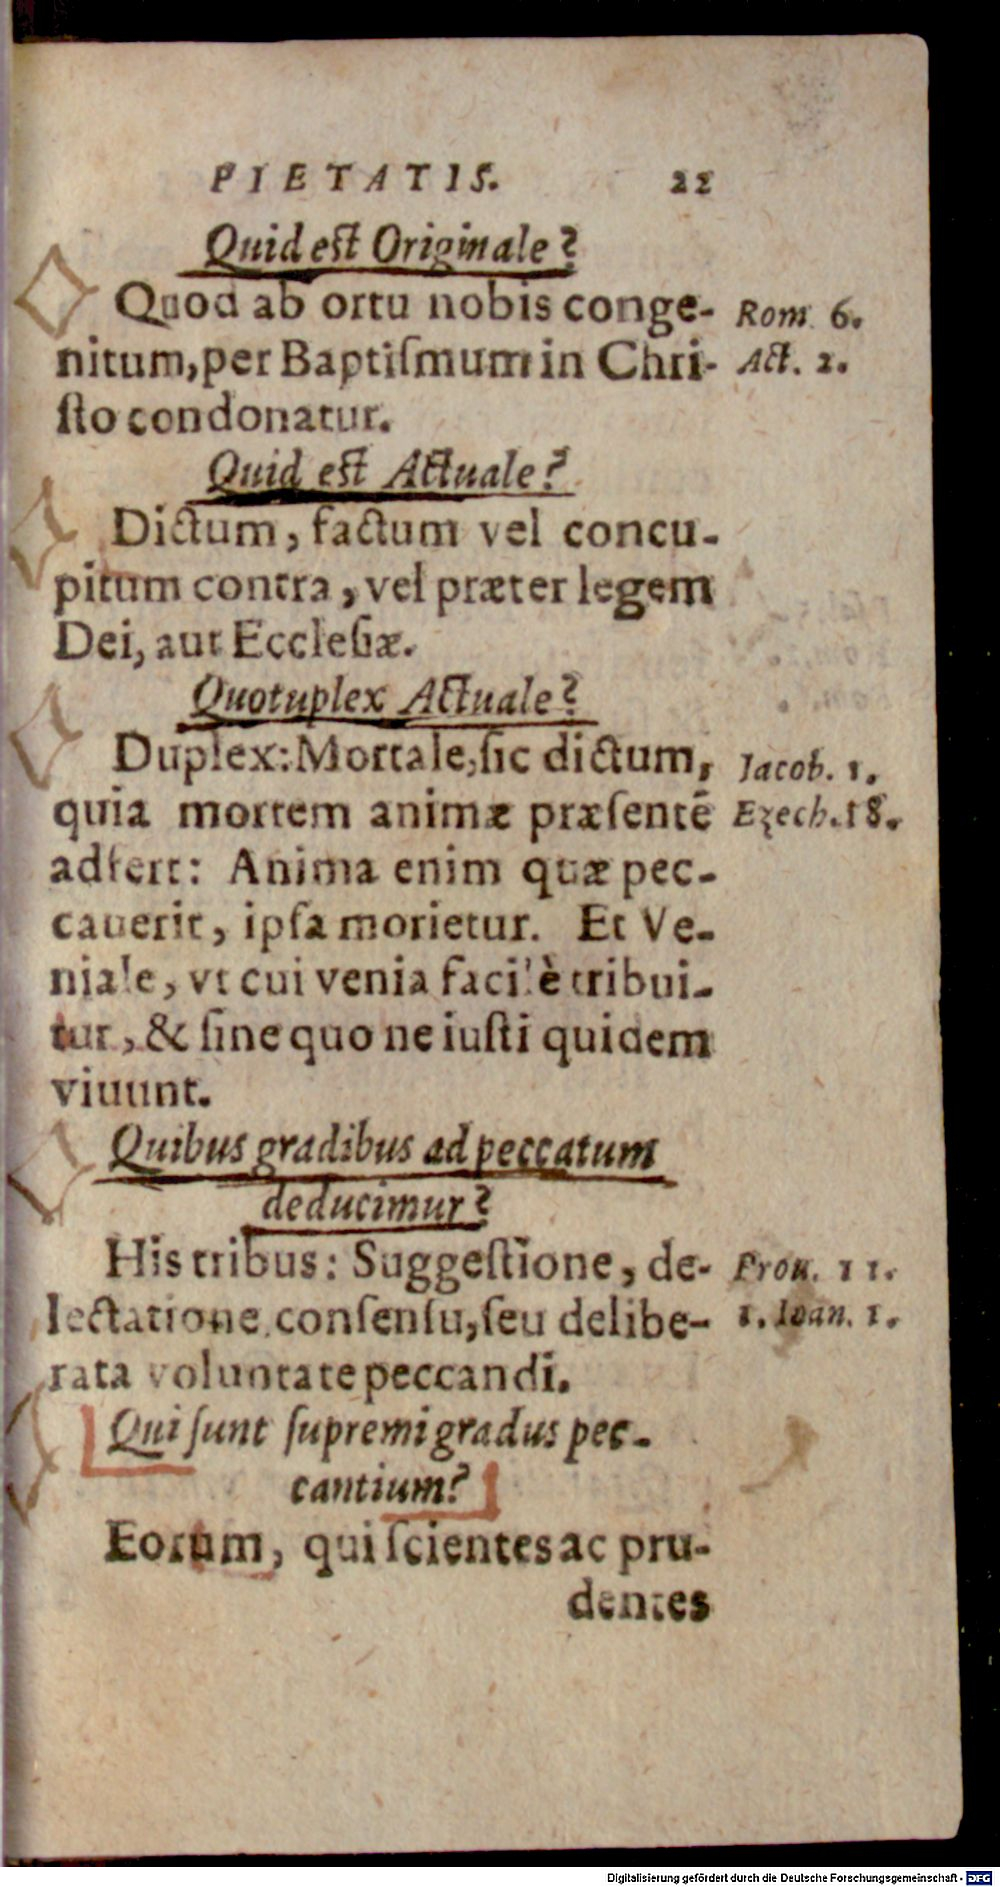 PIETATIS. 22
Quid est Originale?
Quod ab ortu nobis conge- Rom. 6.
nitum, per Baptiſmum in Chri- Act. 2.
ſto condonatur.
Quid est Actuale?
Dictum, factum vel concu-
pitum contra, vel præter legem
Dei, aut Eccleſiæ.
Quotuplex Actuale?
Duplex: Mortale, ſic dictum, Jacob. 1.
quia mortem animæ præſentē Ezech. 18.
adfert: Anima enim quæ pec-
cauerit, ipſa morietur. Et Ve-
niale, vt cui venia facilè tribui-
tur, & ſine quo ne iuſti quidem
viuunt.
Quibus gradibus ad peccatum
deducimur?
His tribus: Suggeſtione, de- Prou. 11.
lectatione, conſenſu, ſeu delibe- 1. Ioan. 1.
rata voluntate peccandi.
Qui ſunt ſupremi gradus pec-
cantium?
Eorum, qui ſcientes ac pru-
dentes
Digitalisierung gefördert durch die Deutsche Forschungsgemeinschaft - DFG